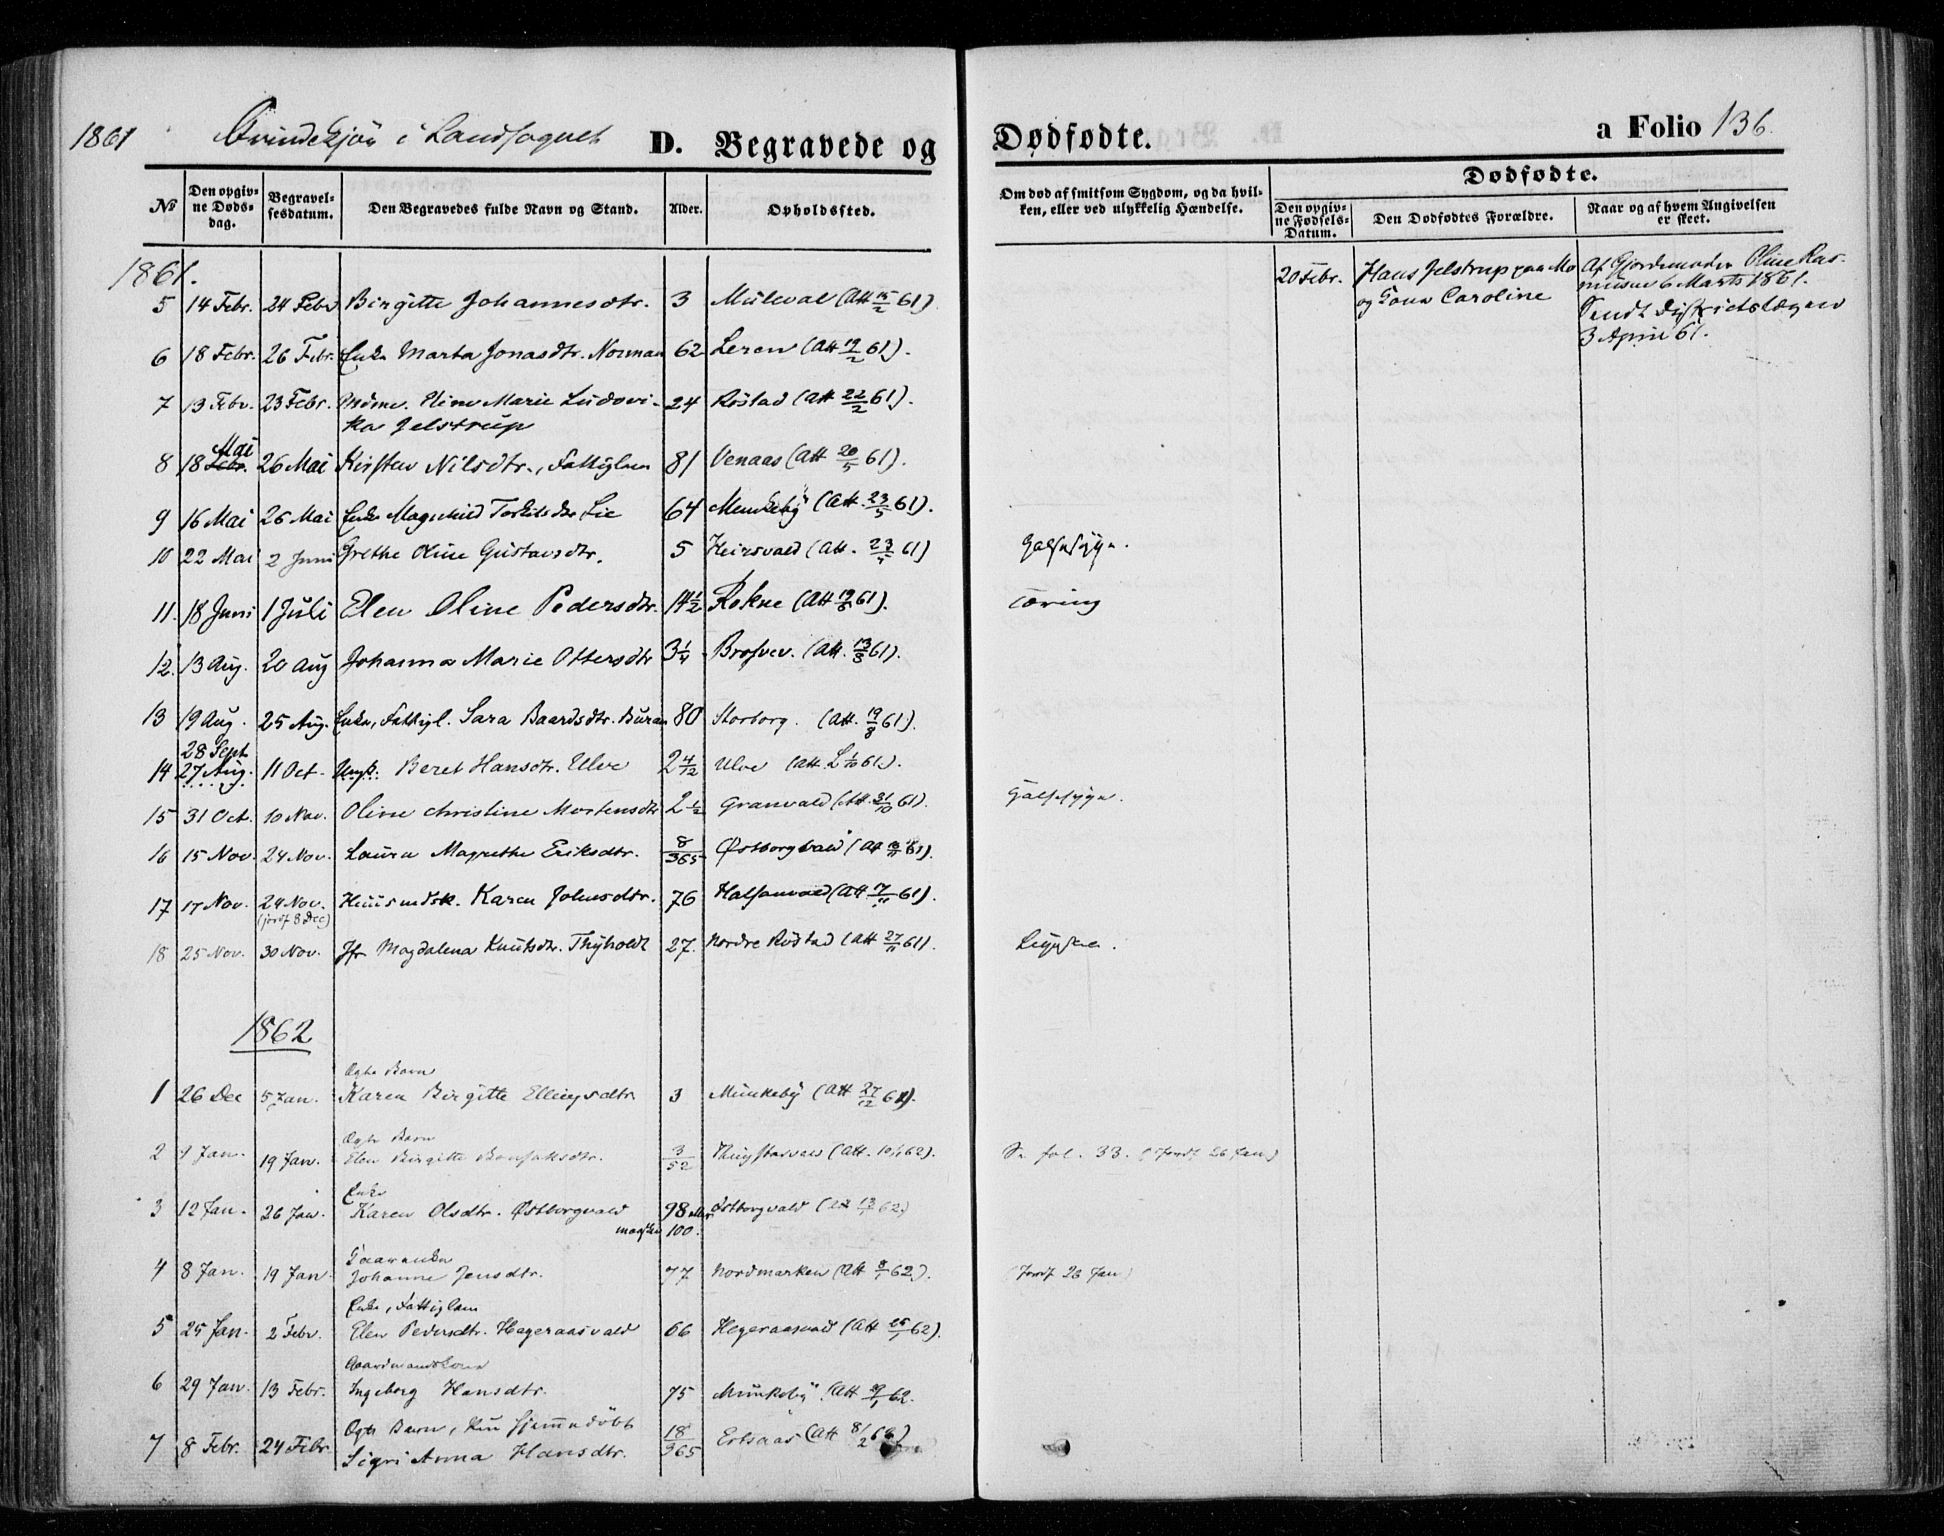 1861 Qvindekjøn i Landsognet D. Begravede og Dødfødte. a Folio 136.
№ Den opgivne Døds-dag. Begravelsesdatum. Den Begravedes fulde Navn og Stand. Alder. Opholdssted. Om død af smitsom Sygdom, og da hvilken, eller ved ulykkelig Hændelse. Dødfødte.
Den opgivne Fødsels-Datum. Den Dødfødtes Forældre. Naar og af hvem Angivelsen er skeet.
1861.
20 Febr. Hans Jelstrup paa Mo og Caroline
Af Gjordemoder Oline Rasmusen 6 Marts 1861.
Sendt Districtslægen
3 April 61.
5 14 Febr. 24 Febr Birgitte Johannesdtr. 3 Muleval (Att 15/2 61).
6 18 Febr. 26 Febr. Enke Marta Jonasdtr. Norman 62 Leren (Att 19/2 61).
7 13 Febr. 23 Febr. Eline Marie Ludovi-
ka Jelstrup 24 Røstad (Att 22/2 61).
8 18 Mai 26 Mai Kirsten Nilsdtr., Fattiglem 81 Venaas (Att 20/5 61).
9 16 Mai 26 Mai Enke Magnhild Lie 64 Munkeby (Att. 23/5 61).
10 22 Mai 2 Juni Grethe Oline Gustavsdtr. 5 (Att. 61)
11. 18 Juni 1 Juli Elen Oline Pedersdtr. 14½ Rokne (Att 61). Tæring
12. 13 Aug. 20 Aug Johanna Marie Ottersdtr 3¼ (Att. 13/8 61).
13 19 Aug. 25 Aug. Enke, Fattigl. Sara Baardsdtr. Buran 80 Storborg. (Att. 19/8 61).
28 Sept
14 27 Aug. 11 Oct. Ungk. Beret Hansdtr. Ulve 2 4/12 Ulve (Att. 61).
15 31 Oct. 10 Nov. Oline Christine Mortensdtr 2½ Granvald (Att. 31/10 61).
16 15 Nov. 24 Nov. Laura Magrethe Eriksdtr. 8/365 Østborgvald (Att 61).
17 17 Nov. 24 Nov. (jordf 8 Dec) Karen Johnsdtr. 76 (Att 61).
18 25 Nov. 30 Nov. Jfr Magdalena Knutsdtr. Thyholdt 27. Nordre Røstad (Att 27/11 61).
1862
Ægte Barn
1 26 Dec 5 Jan. Karen Birgitte Ellingsdtr 3 Munkeby (Att 27/12 61).
Ægte Barn
2 Jan. 19 Jan. Elen Birgitte 3/52 (Att. 10/1 62). Se fol. 33. (Jordf 26 Jan)
Enke
3 12 Jan. 26 Jan. Karen Olsdtr. Østborgvald 98 eller maaske 100. Østborgvald (Att 13/1 62)
Gaardenke
4 8 Jan. 19 Jan Johanne Jensdtr. 77 Nordmarken (Att 8/1 62). (Jordf 26 Jan)
Enke, Fattiglem
5 25 Jan. 2 Febr. Elen Pedersdtr. Hegeraasvald 66 Hegeraasvald (Att 25/1 62).
Gaardmandskone
6 29 Jan. 13 Febr. Ingeborg Hansdtr. 75 Munkeby (Att 62.
Ægte Barn, kun hjemmedøbt
7 8 Febr. 24 Febr Sigri Anna Hansdtr. 18/365 Ertsaas (Att 8/2 62)